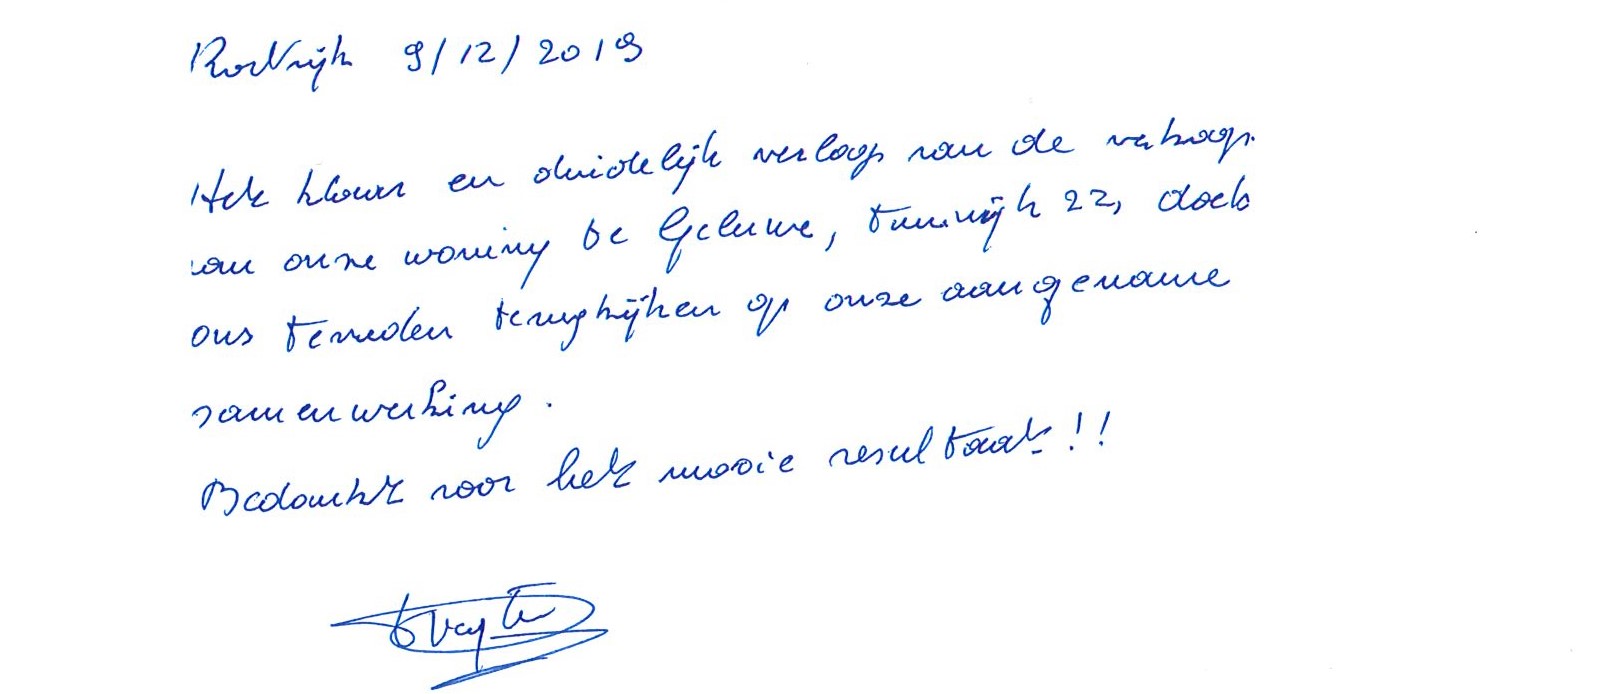 Kortrijk 9/12/2019
Het klaar en duidelijk verloop van de verkoop
van onze woning te Geluwe, 22, doet
ons tevreden terugkijken op onze aangename
samenwerking.
Bedankt voor het mooie resultaat!!